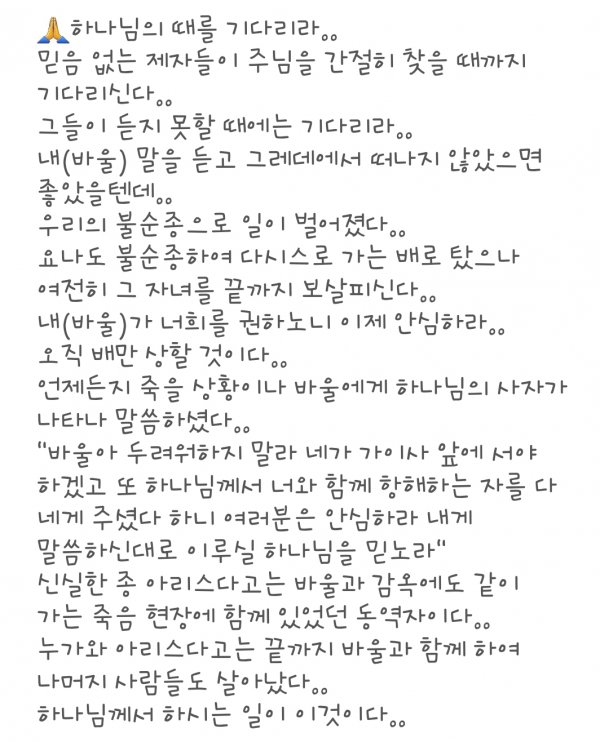 🙏하나님의 때를 기다리라。。
믿음 없는 제자들이 주님을 간절히 찾을 때까지
기다리신다。。
그들이 듣지 못할 때에는 기다리라。。
내(바울) 말을 듣고 그레데에서 떠나지 않았으면
좋았을텐데。。
우리의 불순종으로 일이 벌어졌다。。
요나도 불순종하여 다시스로 가는 배로 탔으나
여전히 그 자녀를 끝까지 보살피신다。。
내(바울)가 너희를 권하노니 이제 안심하라。。
오직 배만 상할 것이다。。
언제든지 죽을 상황이나 바울에게 하나님의 사자가
나타나 말씀하셨다。。
"바울아 두려워하지 말라 네가 가이사 앞에 서야
하겠고 또 하나님께서 너와 함께 항해하는 자를 다
네게 주셨다 하니 여러분은 안심하라 내게
말씀하신대로 이루실 하나님을 믿노라"
신실한 종 아리스다고는 바울과 감옥에도 같이
가는 죽음 현장에 함께 있었던 동역자이다。。
누가와 아리스다고는 끝까지 바울과 함께 하여
나머지 사람들도 살아났다。。
하나님께서 하시는 일이 이것이다。。